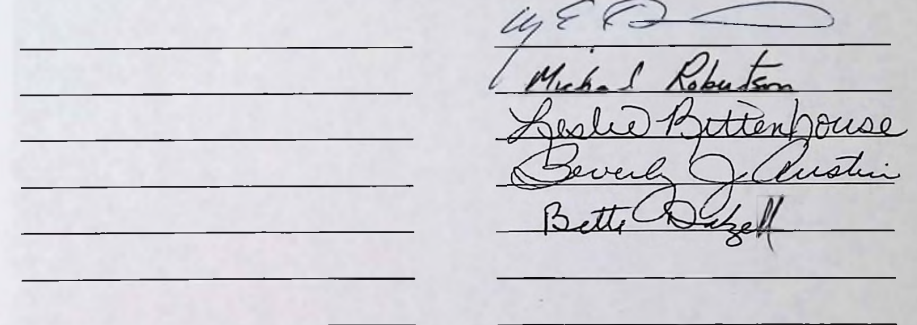 Michael Robertson
Leslie Bittenhouse
Beverly J. Austin
Bette Dalzell